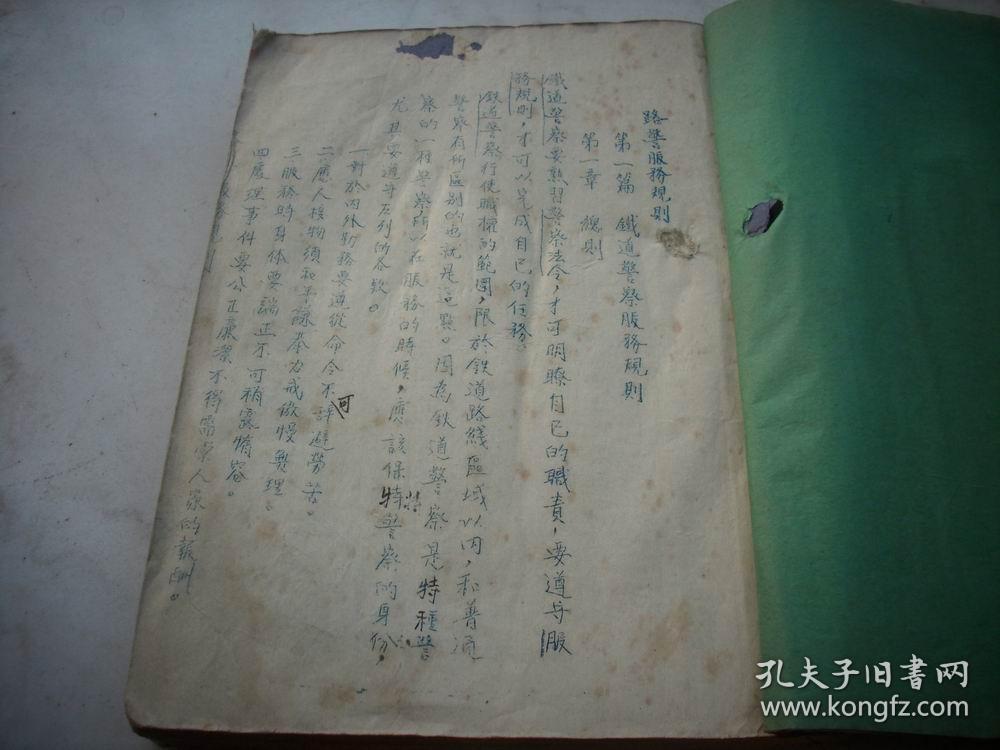 路警服務規則
第一篇 鐵道警察服務規則
第一章 總則
鐵道警察要熟習警察法令,才可明瞭自己的職責,要遵守服
務規則,才可以完成自己的任務
鉄道警察行使職權的範圍,限於鉄道路綫區域以内,和普通
警察有所區别的也就是這點。因為鉄道警察是特種警
察的一種警察所以在服務的時候,應該保持警察的身份,
尤其要遵守左列的各款。
一對於内外勤務要遵從命令不可辞避勞苦。
二應人接物須和平謙恭力戒傲慢無理。
三服務時身体要端正不可稍露惰容。
四處理事件要公正廉潔不得需索人家的報酬。
孔夫子旧书网
www.kongfz.com